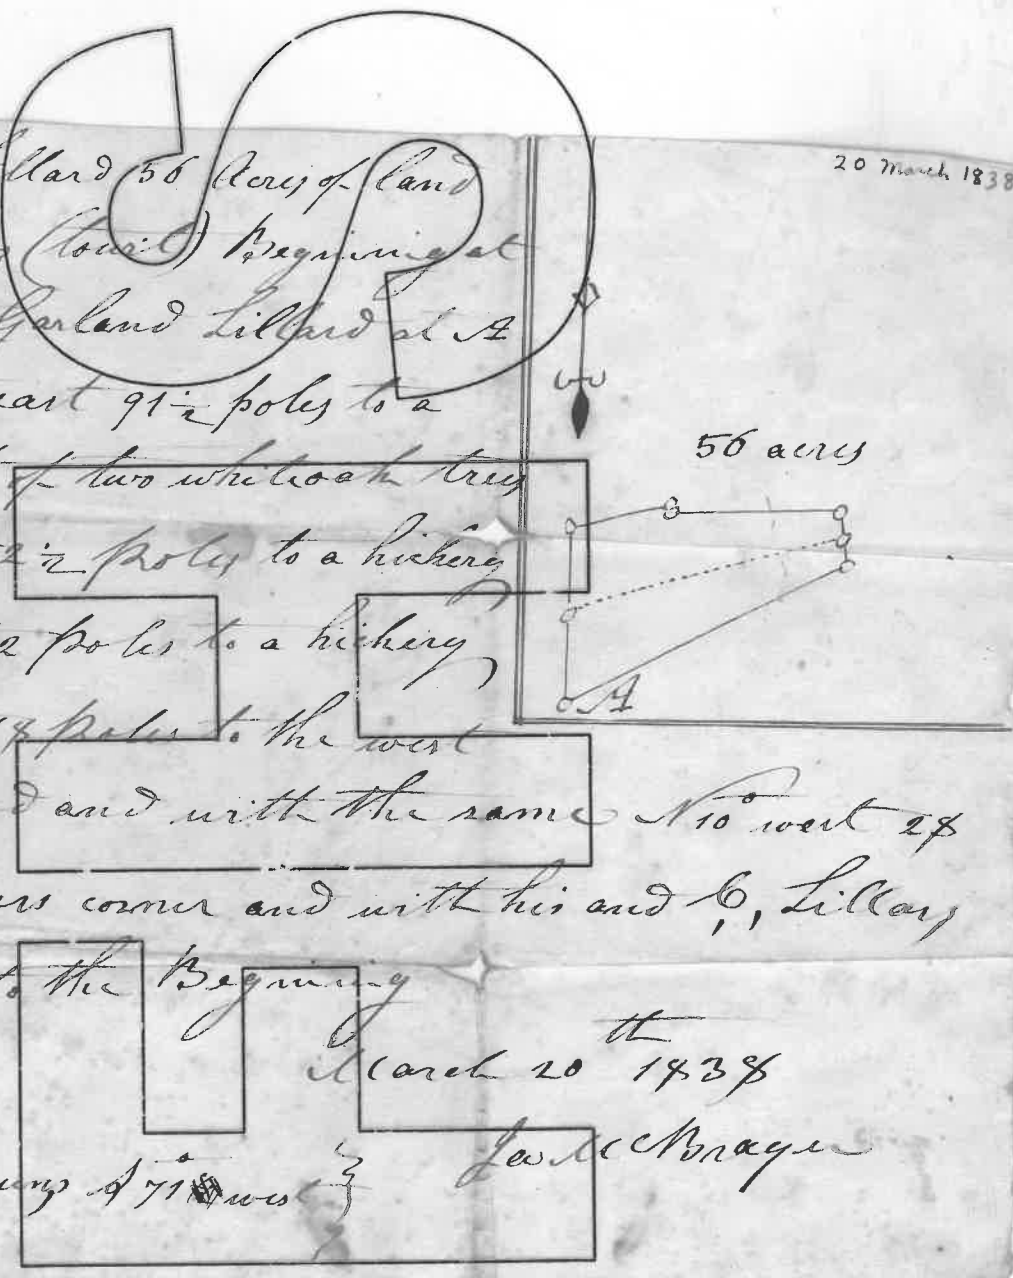 20 March 1838
llard 56 Acres of land
(towit) Begining at
Garland Lillard at A
east 91½ poles to a
of two whiteoak trees
2½ poles to a hickery
2 poles to a hickery
8 poles to the west
d and with the same N 10° west 28
ers corner and with his and C, Lillars
to the Begining
March 20th 1838
Ja McBrayer
S 71° west
56 acres
A
SIH